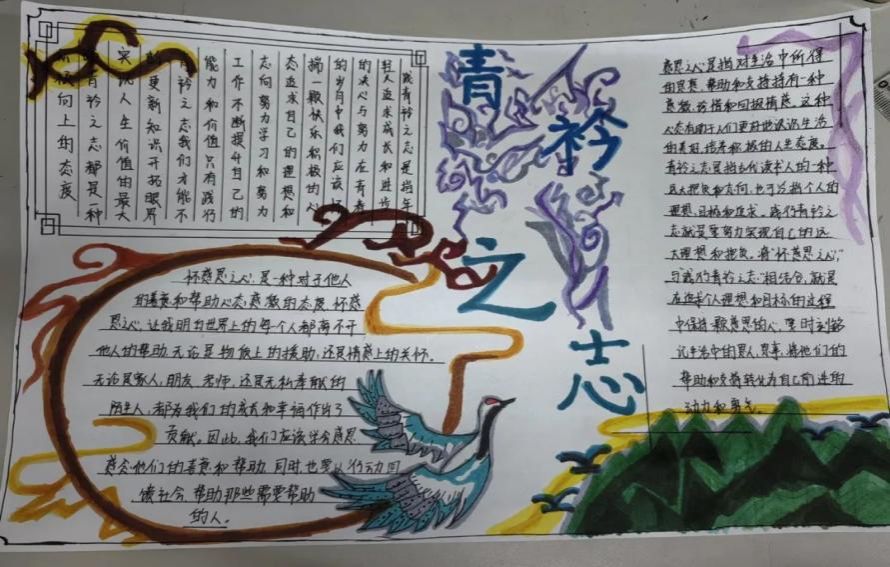 践青衿之志是指年
轻人追求成长和进步
的决心与努力在青春
的岁月中我们应该怀
揣一颗快乐积极的心
态追求自己的理想和
志向努力学习和努力
工作不断提升自己的
能力和价值只有践行
青衿之志我们才能不
更新知识开拓眼界
实现人生价值的最大
青衿之志都是一种
极向上的态度
青衿之志
怀感恩之心,是一种对于他人
的善意和帮助心态感激的态度.怀感
恩之心,让我明白世界上的每个人都离不开
他人的帮助,无论是物质上的援助,还是情感上的关怀.
无论是家人,朋友,老师,还是无私奉献的
陌生人,都为我们的成长和幸福作出了
贡献。因此,我们应该学会感恩
感念他们的善意和帮助.同时,也要以行动回
馈社会,帮助那些需要帮助
的人。
感恩之心是指对生活中所得
的恩惠、帮助和支持持有一种
感激、珍惜和回报情感.这种
心态有助于人们更好地认识生活
的美好,培养积极的人生态度。
青衿之志是指古代读书人的一种
远大抱负和志向,也可以指个人的
理想、目标和追求。践行青衿之
志就是要努力实现自己的远
大理想和抱负。将"怀感恩之心,"
与"践行青衿之志"相结合,就是
在追求个人理想和目标的过程
中保持一颗感恩的心,要时刻铭
记生活中的恩人、恩事,将他们的
帮助和支持转化为自己前进的
动力和勇气。